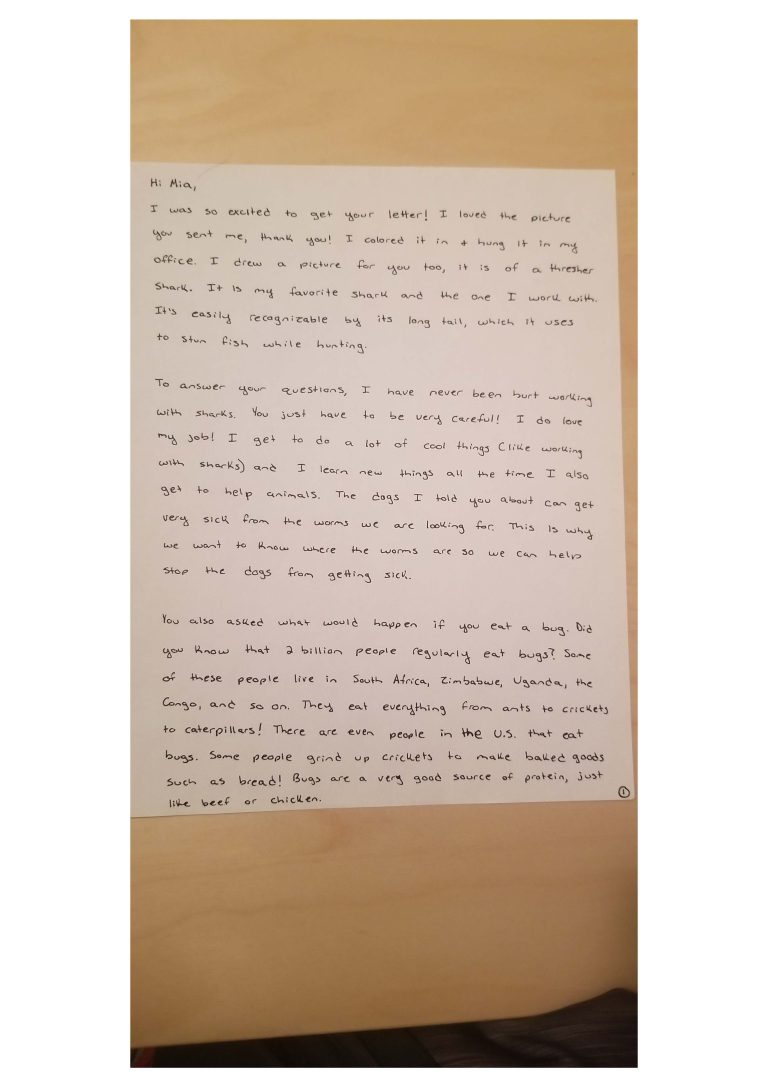 Hi Mia,
I was so excited to get your letter! I loved the picture
you sent me, thank you! I colored it in + hung it in my
office. I drew a picture for you too, it is of a thresher
shark. It is my favorite shark and the one I work with.
It's easily recognizable by its long tail, which it uses
to stun fish while hunting.
To answer your questions, I have never been hurt working
with sharks. You just have to be very careful! I do love
my job! I get to do a lot of cool things (like working
with sharks) and I learn new things all the time I also
get to help animals. The dogs I told you about can get
very sick from the worms we are looking for. This is why
we want to know where the worms are so we can help
stop the dogs from getting sick.
You also asked what would happen if you eat a bug. Did
you know that 2 billion people regularly eat bugs? Some
of these people live in South Africa, Zimbabwe, Uganda, the
Congo, and so on. They eat everything from ants to crickets
to caterpillars! There are even people in the U.S. that eat
bugs. Some people grind up crickets to make baked goods
such as bread! Bugs are a very good source of protein, just
like beef or chicken.
1